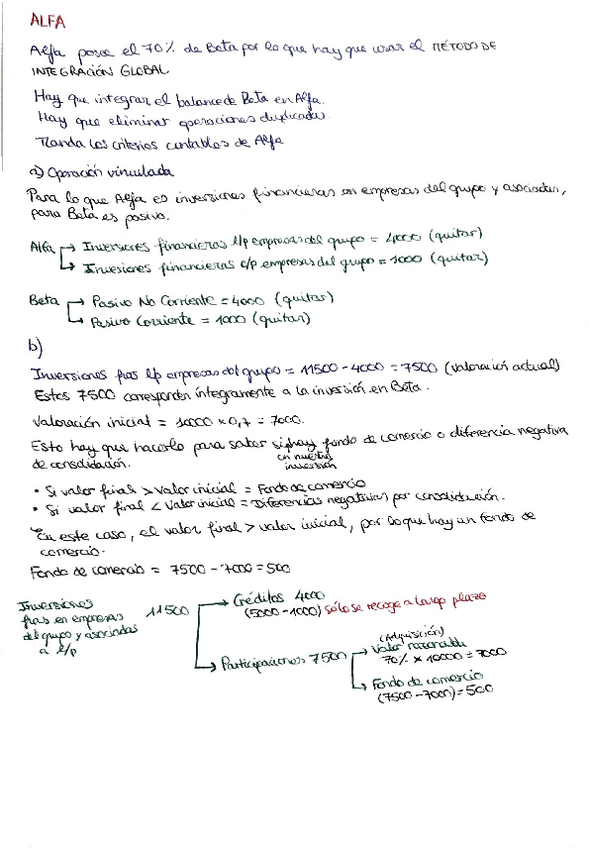 ALFA
Alfa posee el 70% de Beta por lo que hay que usar el MÉTODO DE
INTEGRACIÓN GLOBAL
Hay que integrar el balance de Beta en Alfa.
Hay que eliminar operaciones duplicadas.
Manda los criterios contables de Alfa
a) Operación vinculada
Para lo que Alfa es inversiones financieras en empresas del grupo y asociadas,
para Beta es pasivo.
Alfa → Inversiones financieras l/p empresas del grupo = 4000 (quitar)
↳ Inversiones financieras c/p empresas del grupo = 1000 (quitar)
Beta → Pasivo No Corriente = 4000 (quitar)
↳ Pasivo Corriente = 1000 (quitar)
b)
Inversiones fras l/p empresas del grupo = 11500 - 4000 = 7500 (valoración actual)
Estos 7500 corresponden íntegramente a la inversión en Beta.
Valoración inicial = 10000 x 0,7 = 7000.
Esto hay que hacerlo para saber si hay fondo de comercio o diferencia negativa
en nuestra
inversión
de consolidación.
• Si valor final > valor inicial = Fondo de comercio
• Si valor final < valor inicial = Diferencias negativas por consolidación.
En este caso, el valor final > valor inicial, por lo que hay un fondo de
comercio.
Fondo de comercio = 7500 - 7000 = 500
Inversiones
fras en empresas
del grupo y asociadas
a l/p
11500
→ Créditos 4000
(5000-1000) sólo se recoge a largo plazo
↳ Participaciones 7500
(Adquisición)
→ Valor razonable
70% x 10000 = 7000
↳ Fondo de comercio
(7500-7000) = 500